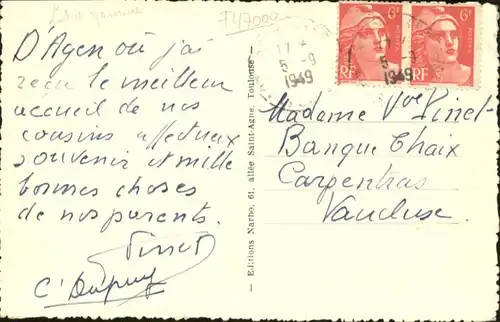 FL/7000
D'Agen où j'ai
reçu le meilleur
accueil de nos
cousins affectueux
souvenir et mille
bonnes choses
de nos parents.
Pinet
C. Dupuy
— Editions Narbo, 61, allée Saint-Agne, Toulouse —
17 *
5 - 9
1949
17
5 - 9
1949
6F
RF
POSTES
6F
RF
POSTES
Madame Vve Pinet
Banque Chaix
Carpentras
Vaucluse